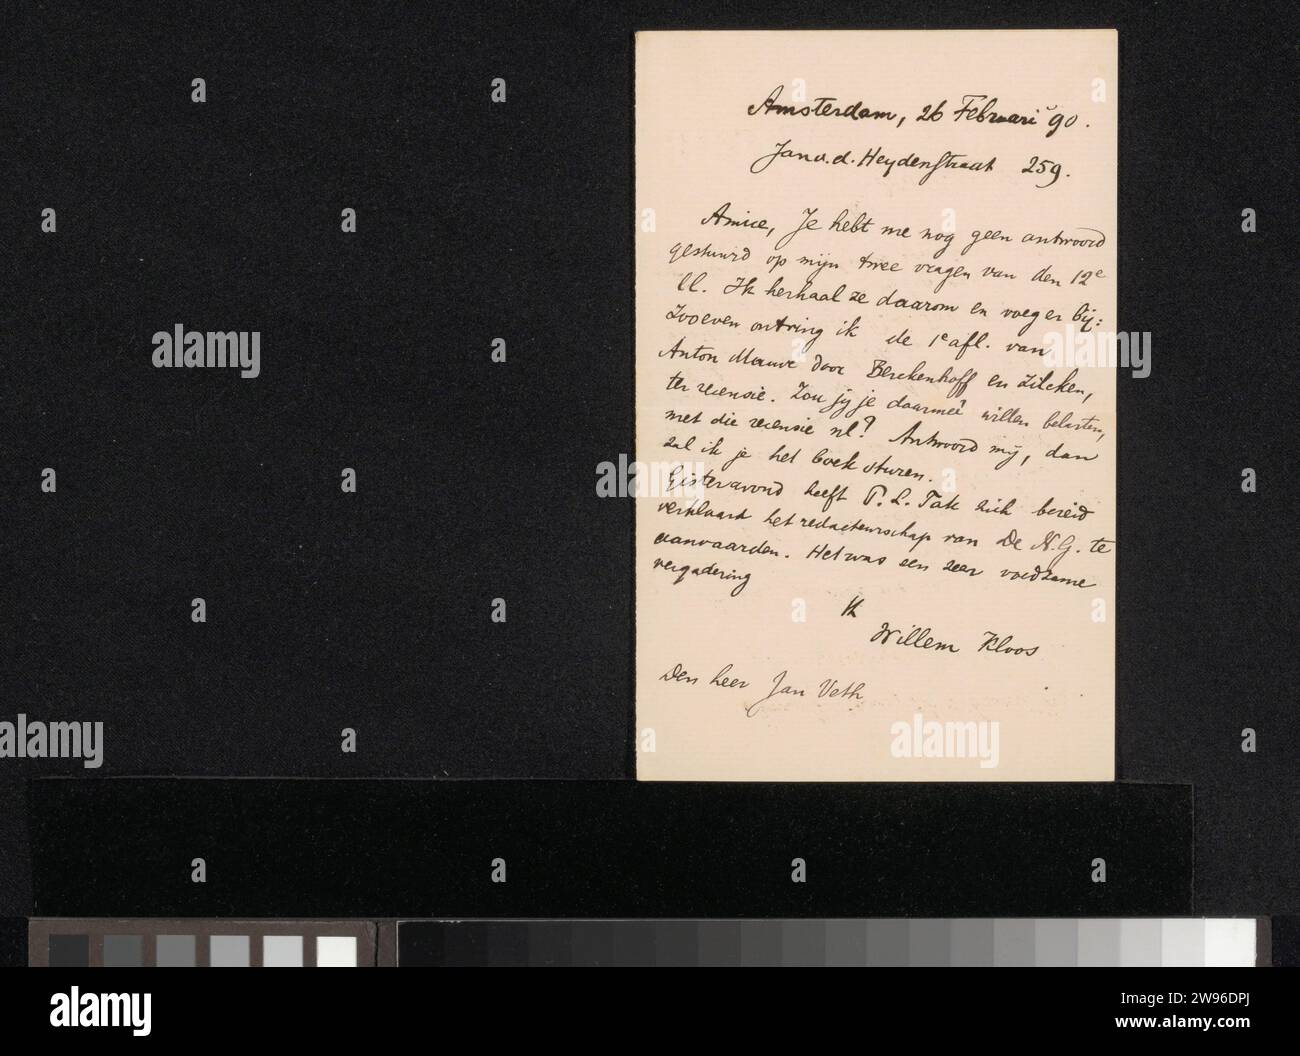 Amsterdam, 26 Februari '90.
Jan v. d. Heydenstraat 259.
Amice, Je hebt me nog geen antwoord
gestuurd op mijn twee vragen van den 12e
ll. Ik herhaal ze daarom en voeg er bij:
Zooeven ontving ik de 1e afl. van
Anton Mauve door Berckenhoff en Zilcken,
ter recensie. Zou jij je daarmeê willen belasten,
met die recensie nl? Antwoord mij, dan
zal ik je het boek sturen.
Gisteravond heeft P. L. Tak zich bereid
verklaard het redacteurschap van De N.G. te
aanvaarden. Het was een zeer voedzame
vergadering
tt
Willem Kloos
Den heer Jan Veth
alamy
alamy
alamy
Image ID: 2W96DPJ
www.alamy.com